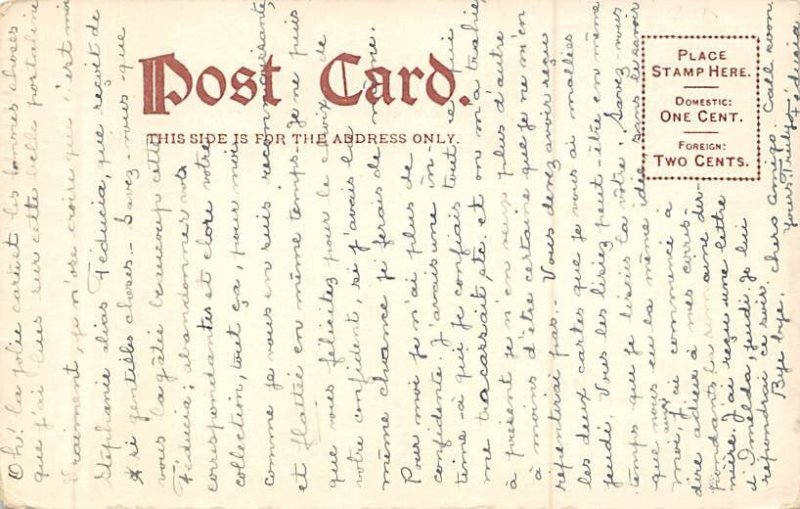 Post Card.
THIS SIDE IS FOR THE ADDRESS ONLY.
PLACE
STAMP HERE.
DOMESTIC:
ONE CENT.
FOREIGN:
TWO CENTS.
Oh! la jolie carte et les bonnes choses
que j'ai lues sur cette belle
Vraiment, je n'ose croire que c'est moi
Stéphanie alias Féducia, que reçoit de
si gentilles choses. - Savez-vous que
vous la gâtée beaucoup cette
Féducia; abandonner vos
correspondantes et clore votre
collection, tout ça, pour moi
comme je vous en suis reconnaissante,
et flattée en même temps. Je ne puis
que vous félicitez pour le choix de
votre confident, si j'avais la
même chance je ferais de même.
Pour moi je n'ai plus de
confidente. J'avais une in-
time à qui je confiais tout ce qui
me tracassait, etc. et on m'a trahie,
à présent je n'en veux plus d'autre
à moins d'être certaine que je ne m'en
repentirai pas. Vous devez avoir reçu
les deux cartes que je vous ai mallées
jeudi. Vous les lisiez peut-être en même
temps que je lisais la vôtre. Savez-vous
que nous eu la même idée sans le savoir
moi, aussi j'ai commencé à
dire adieu à mes corres-
pondants la semaine der-
nière. J'ai reçu une lettre
d'Imelda, jeudi je lui
répondrai ce soir.
Bye bye. chers amigo. Call soon
Yours Truly. Féducia